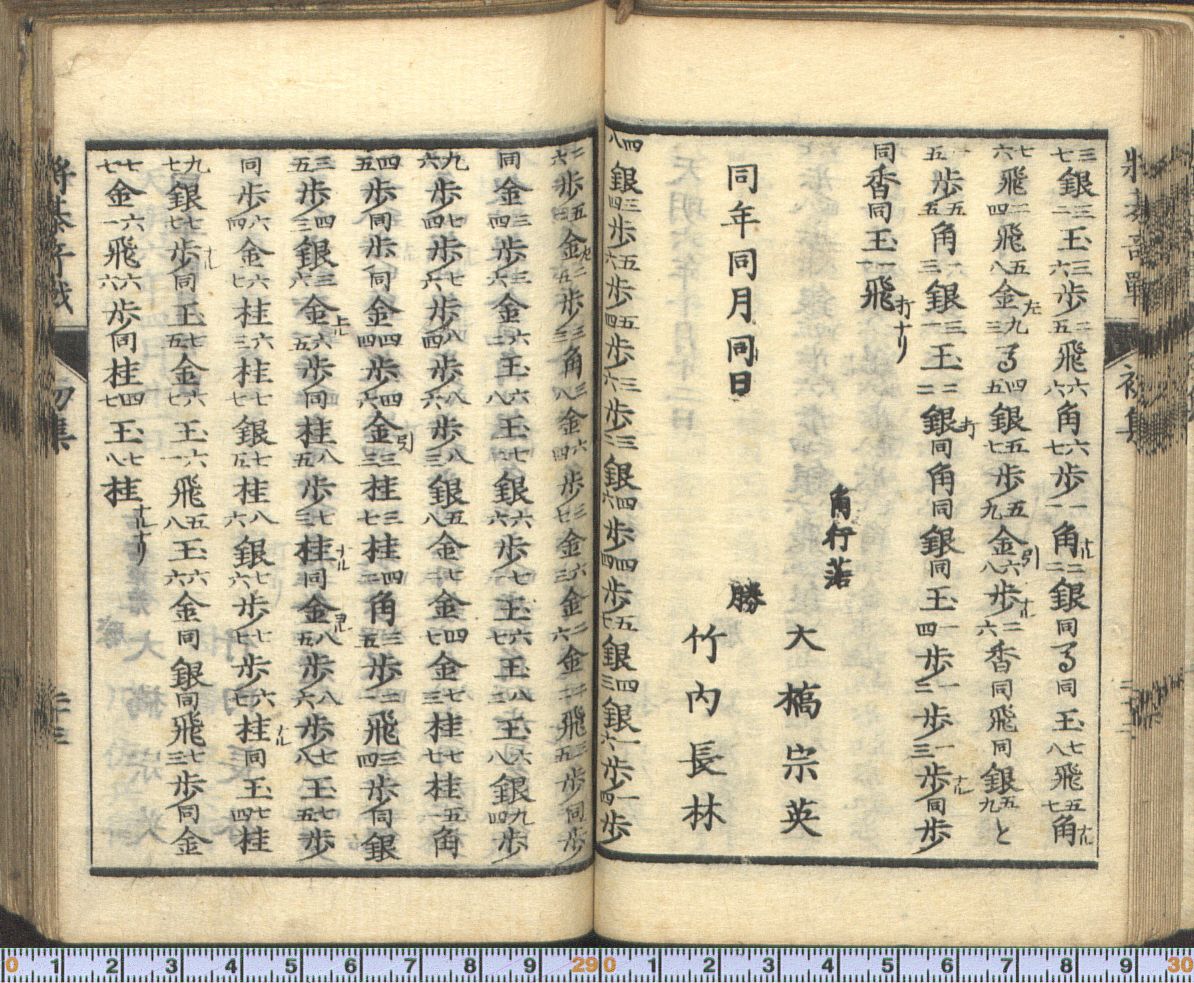 三七銀三二玉三六歩二五飛六六角六七歩一一角ナル二二銀同馬同玉七八飛五七角ナル
七六飛二四飛五八金左九三る四五銀五七歩五九金引六八歩ナル二六香同飛同銀五九と
一五歩五五角六三銀三一玉二二銀打同角同銀同玉一四歩一三歩一三歩ナル同歩
同香同玉一一飛打ナリ
角行落 大橋宗英
同年同月同日 勝 竹内長林
四八銀三四歩五六歩五四歩三六歩三二銀四六歩四四歩五七銀四三銀一六歩一四歩
二六歩五二金左二五歩三三角三八金六四歩三七金六三金二六金二二飛三五歩同歩
同金三四歩三六金六二玉六八玉七二銀六六歩七一玉六七玉八二玉六八銀九四歩
九六歩七四歩七六歩八四歩八六歩八三銀五八金七二金四七金七三桂七七桂五一角
四五歩同歩同金四四歩四六金引三三桂三七桂四二角三五歩二一飛三四歩同銀
三五歩四三銀三六金上ル六五歩同桂八五歩七三桂ナル同金ヨル八五歩八六歩七八玉七五歩
同歩六四金六七桂六三桂七七銀七五桂八六銀七六歩七七歩六七桂ナル同玉七四桂
九七銀七七歩ナル同玉七五金六七玉一六飛五八玉六六金同銀同飛七三歩同金
七七金一六飛六六歩同桂四七玉七八桂ナルナリ
初集
二十三